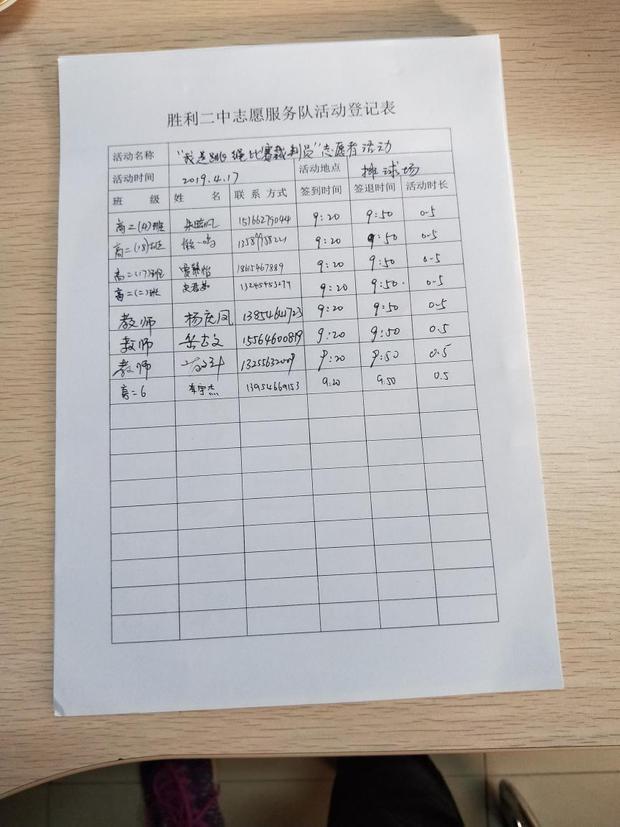 胜利二中志愿服务队活动登记表
活动名称 "我是跳绳比赛裁判员"志愿者活动
活动时间 2019.4.17 活动地点 排球场
班 级 姓 名 联系方式 签到时间 签退时间 活动时长
高二(4)班 15166279044 9:20 9:50 0.5
高二(18)班 9:20 9:50 0.5
高二(17)班 18615467889 9:20 9:50 0.5
高二(二)班 9:20 9:50 0.5
教师 杨庆凤 13854641723 9:20 9:50 0.5
教师 岳古文 15564600819 9:20 9:50 0.5
教师 13255632009 9:20 9:50 0.5
高二6 李宇杰 13954669153 9.20 9.50 0.5